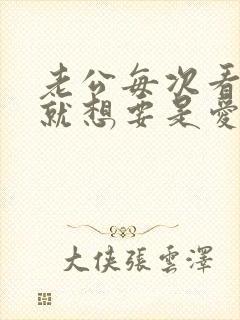 老公每次看
就想要是愛
大侠張雲澤